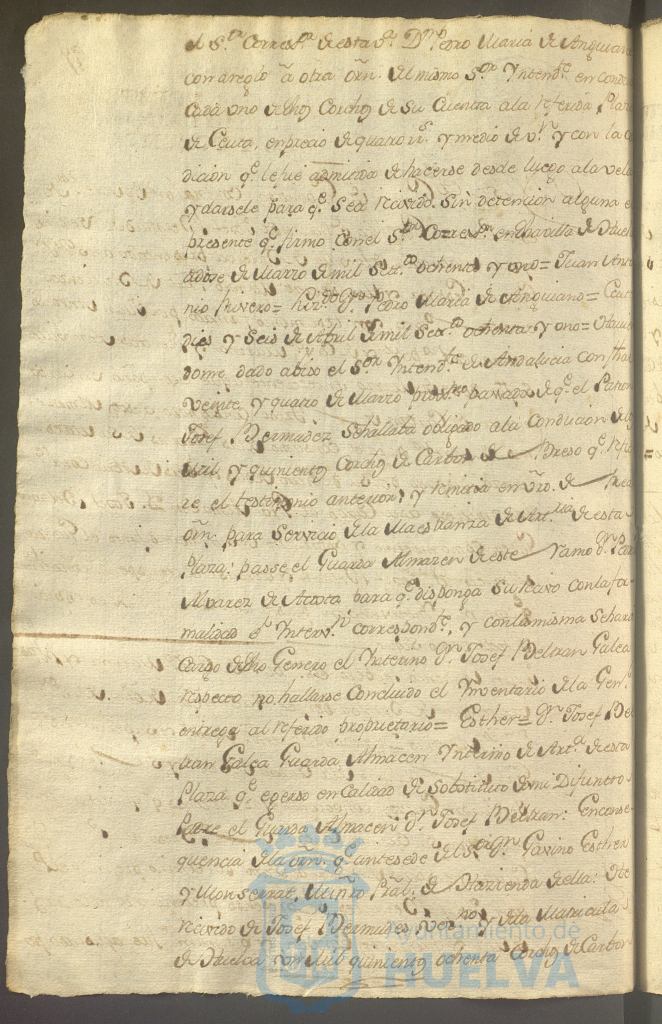 el S.or Corres.r de esta v.a D.n Pedro Maria de Anquiano
con areglo á otra orn. del mismo S.or Yntend.te en
Cada uno de dhos Corchos de su Cuenta a la referida Plaza
de Ceuta, en precio de quatro r.s y medio de v.n y con la
dicion q.e le fue admitida de hacerse desde luego a la vela
y darsele para q.e sea recivido sin detencion alguna el
presente q.e firmo con el S.or Corres.r en la villa de Huel
a dose de Marzo de mil Set.os ochenta y uno= Juan Anto
nio Rivero= Pedro Maria de Anquiano= Ceuta
y Seis de Abril de mil Set.os ochenta y uno= Havien
dome dado aviso el S.or Yntend.te de Andalucia con fha
veinte y quatro de Marzo prox.mo pasado, de q.e el Patron
Josef Bermudez se hallaba obligado a la Condución de
mil y quinientos Corchos de Carbon de Breso q.e refie
re el testimonio anterior, y remitia en de Real
orn. para Servicio de la Maestranza de Art.ria de esta
Plaza: passe el Guarda Almazen de este Ramo D.n
Alvarez de Acosta para q.e disponga su recivo con la for
malidad é Interv.n correspond.te, y con la misma se hará
Cargo de dho Genero el Ynterino D.n Josef Beltran Galca
respecto no hallarse Concluido el Ynventario de la Gen.l
entrega al referido propuetario= Esther= D.n Josef Bel
tran Galca Guarda Almacen Ynterino de Art.a de esta
Plaza q.e exerso en Calidad de Sobstituto de mi Difuncto
Padre el Guarda Almacen D.n Josef Beltran: En conse
quencia de la orn. q.e antesede del S.or D.n Gavino Esther
y Monserrat, Min.ro Pral. de Hazienda de ella: He
recivido de Josef Bermudez, vez.no y de la Matricula
de Huelva un mil quinientos ochenta Corchos de Carbon
Ayuntamiento de
HUELVA